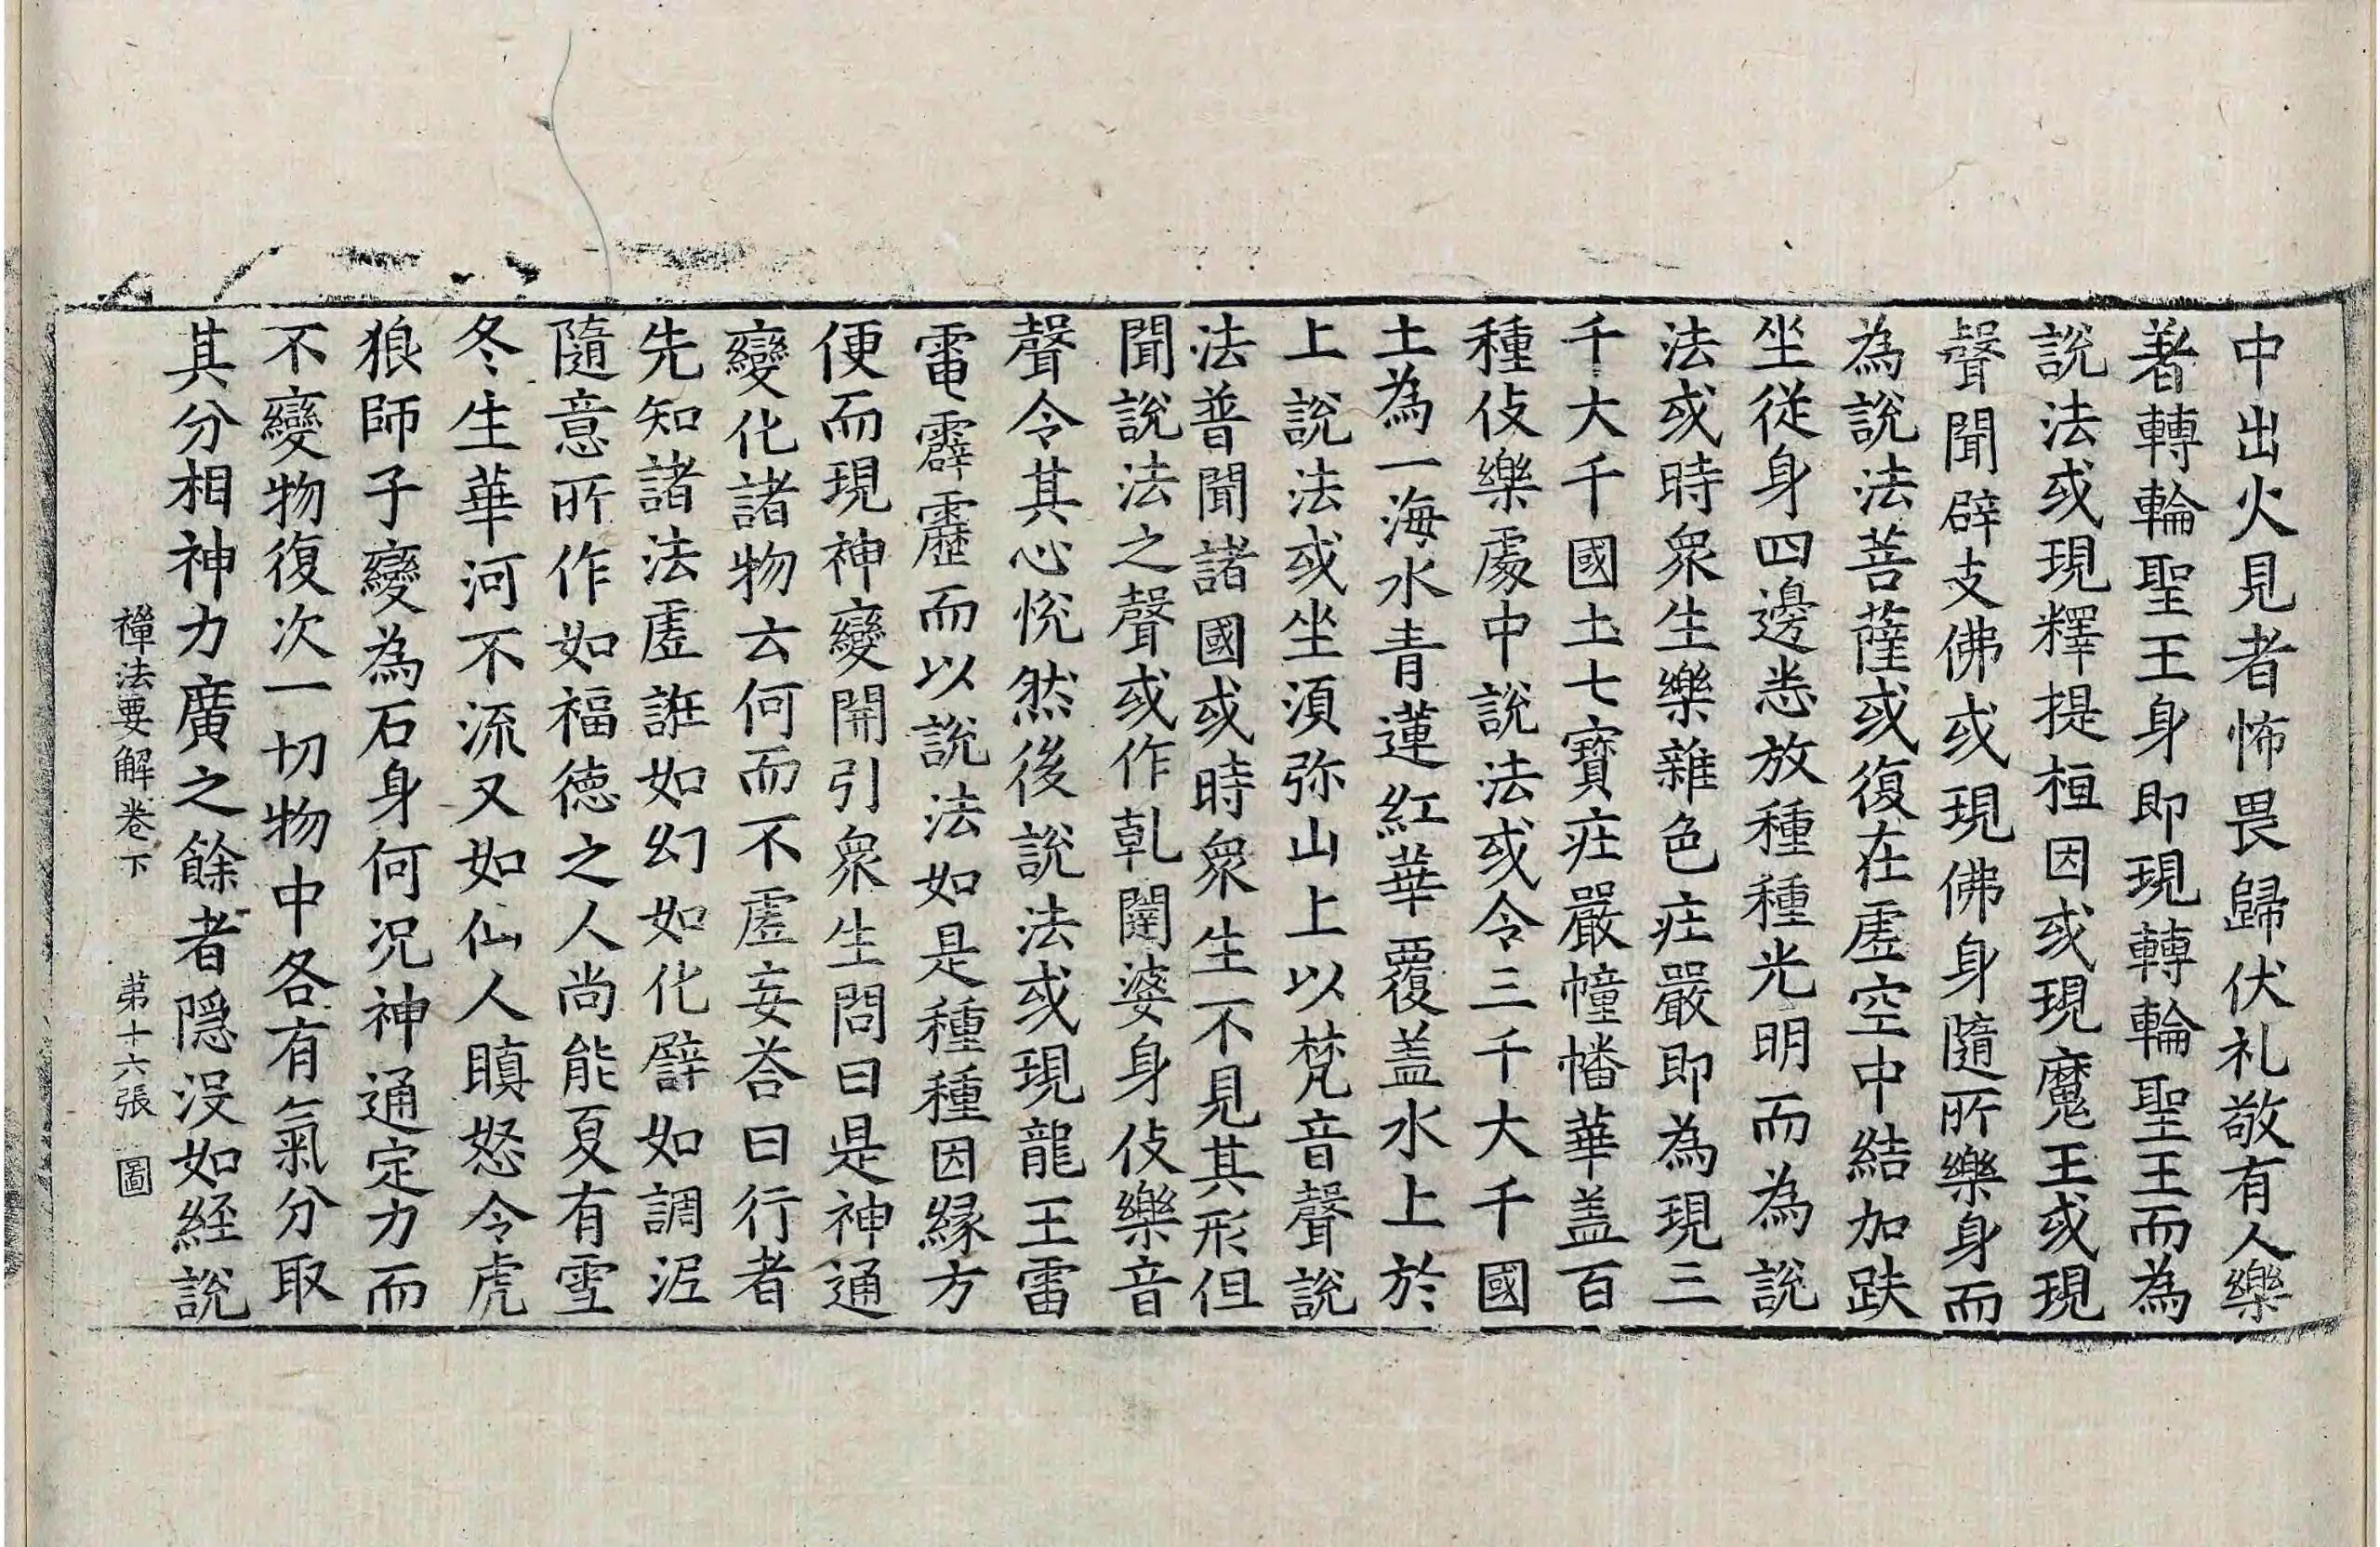 中出火見者怖畏歸伏礼敬有人樂
著轉輪聖王身即現轉輪聖王而為
說法或現釋提桓因或現魔王或現
聲聞辟支佛或現佛身隨所樂身而
為說法菩薩或復在虛空中結加趺
坐從身四邊悉放種種光明而為說
法或時衆生樂雜色庄嚴即為現三
千大千國土七寶庄嚴幢幡華盖百
種伎樂處中說法或令三千大千國
土為一海水青蓮紅華覆盖水上於
上說法或坐湏弥山上以梵音聲說
法普聞諸國或時衆生不見其形但
聞說法之聲或作乹闥婆身伎樂音
聲令其心悅然後說法或現龍王雷
電霹靂而以說法如是種種因緣方
便而現神變開引衆生問曰是神通
變化諸物云何而不虛妄荅曰行者
先知諸法虛誑如幻如化譬如調泥
隨意所作如福德之人尚能夏有雪
冬生華河不流又如仙人瞋怒令虎
狼師子變為石身何况神通定力而
不變物復次一切物中各有氣分取
其分相神力廣之餘者隱沒如經說
禪法要解卷下 第十六張 圖